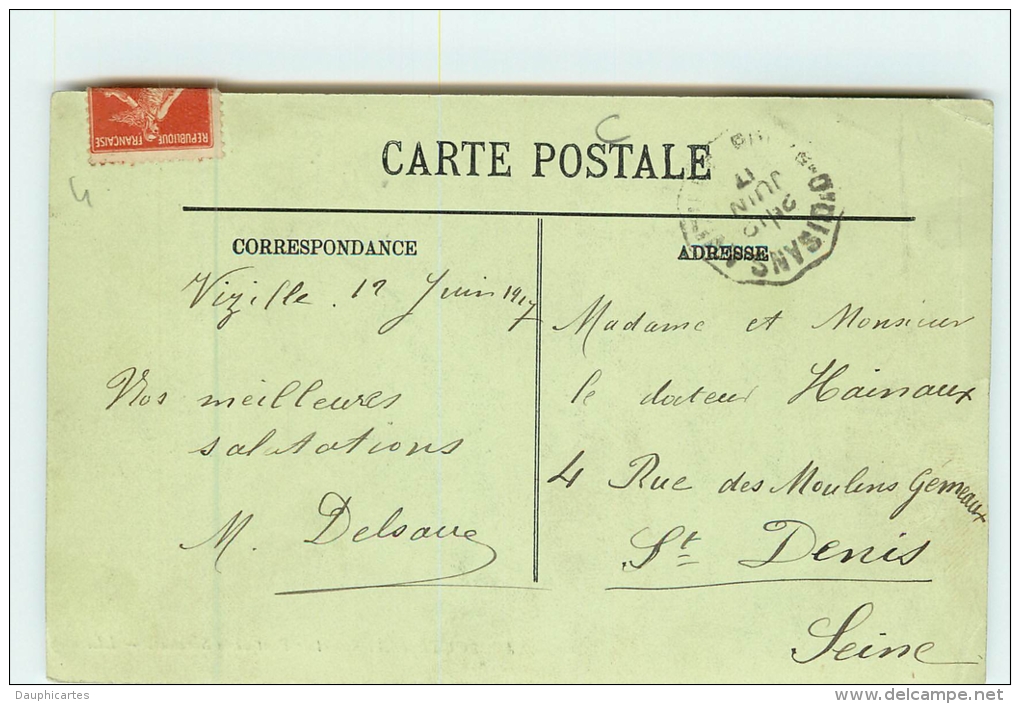 REPUBLIQUE FRANCAISE
4
CARTE POSTALE
D'OISANS
JUIN
17
CORRESPONDANCE
ADRESSE
Vizille. 12 Juin 1917
Nos meilleures
salutations
M.
Madame et Monsieur
le docteur Hainaux
4 Rue des Moulins Gemeaux
St Denis
Seine
Dauphicartes
www.delcampe.net